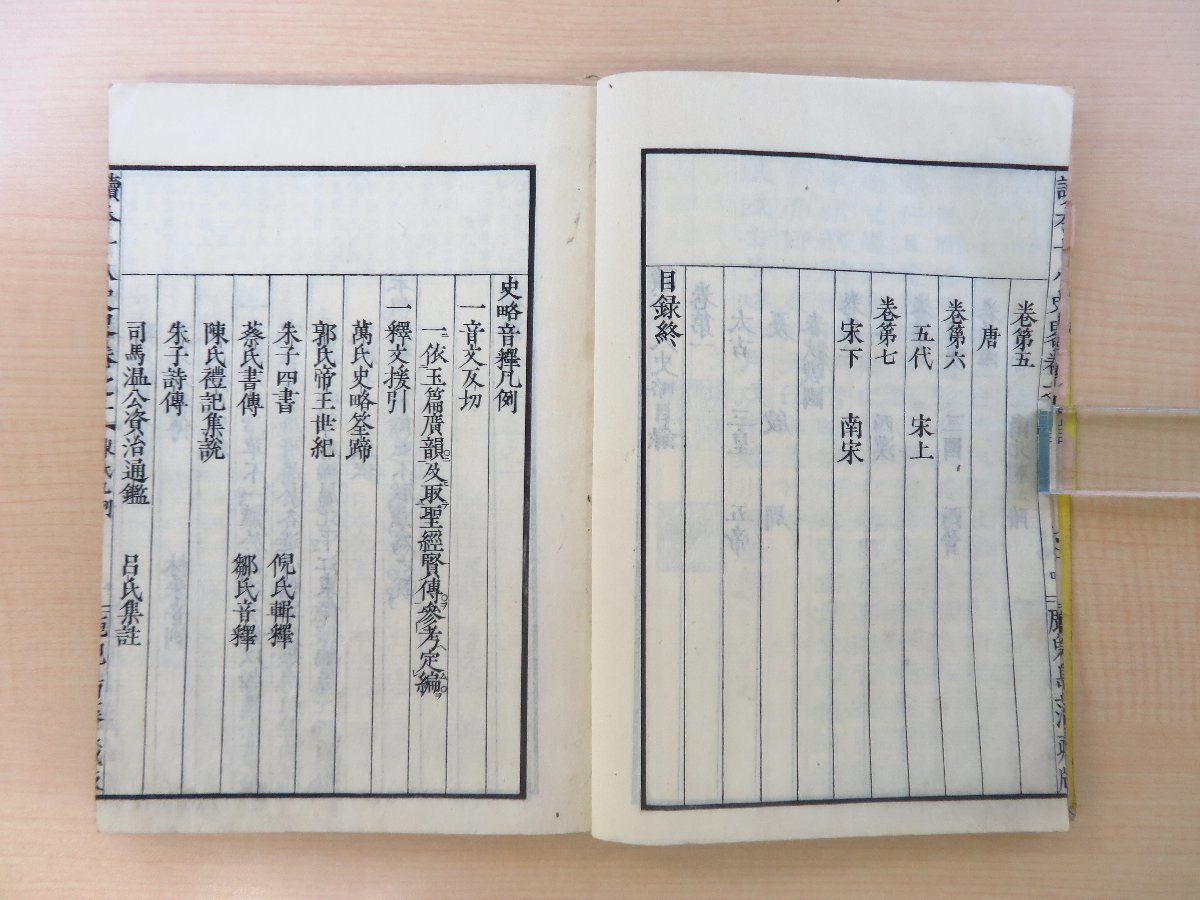 卷第五
唐
卷第六
五代 宋上
卷第七
宋下 南宋
目録終
史略音釋凡例
一音文反切
一依玉篇廣韻及取聖經賢傳參考定編
一釋文援引
萬氏史略筌蹄
郭氏帝王世紀
朱子四書 倪氏輯釋
蔡氏書傳 鄒氏音釋
陳氏禮記集説
朱子詩傳
司馬温公資治通鑑 呂氏集註